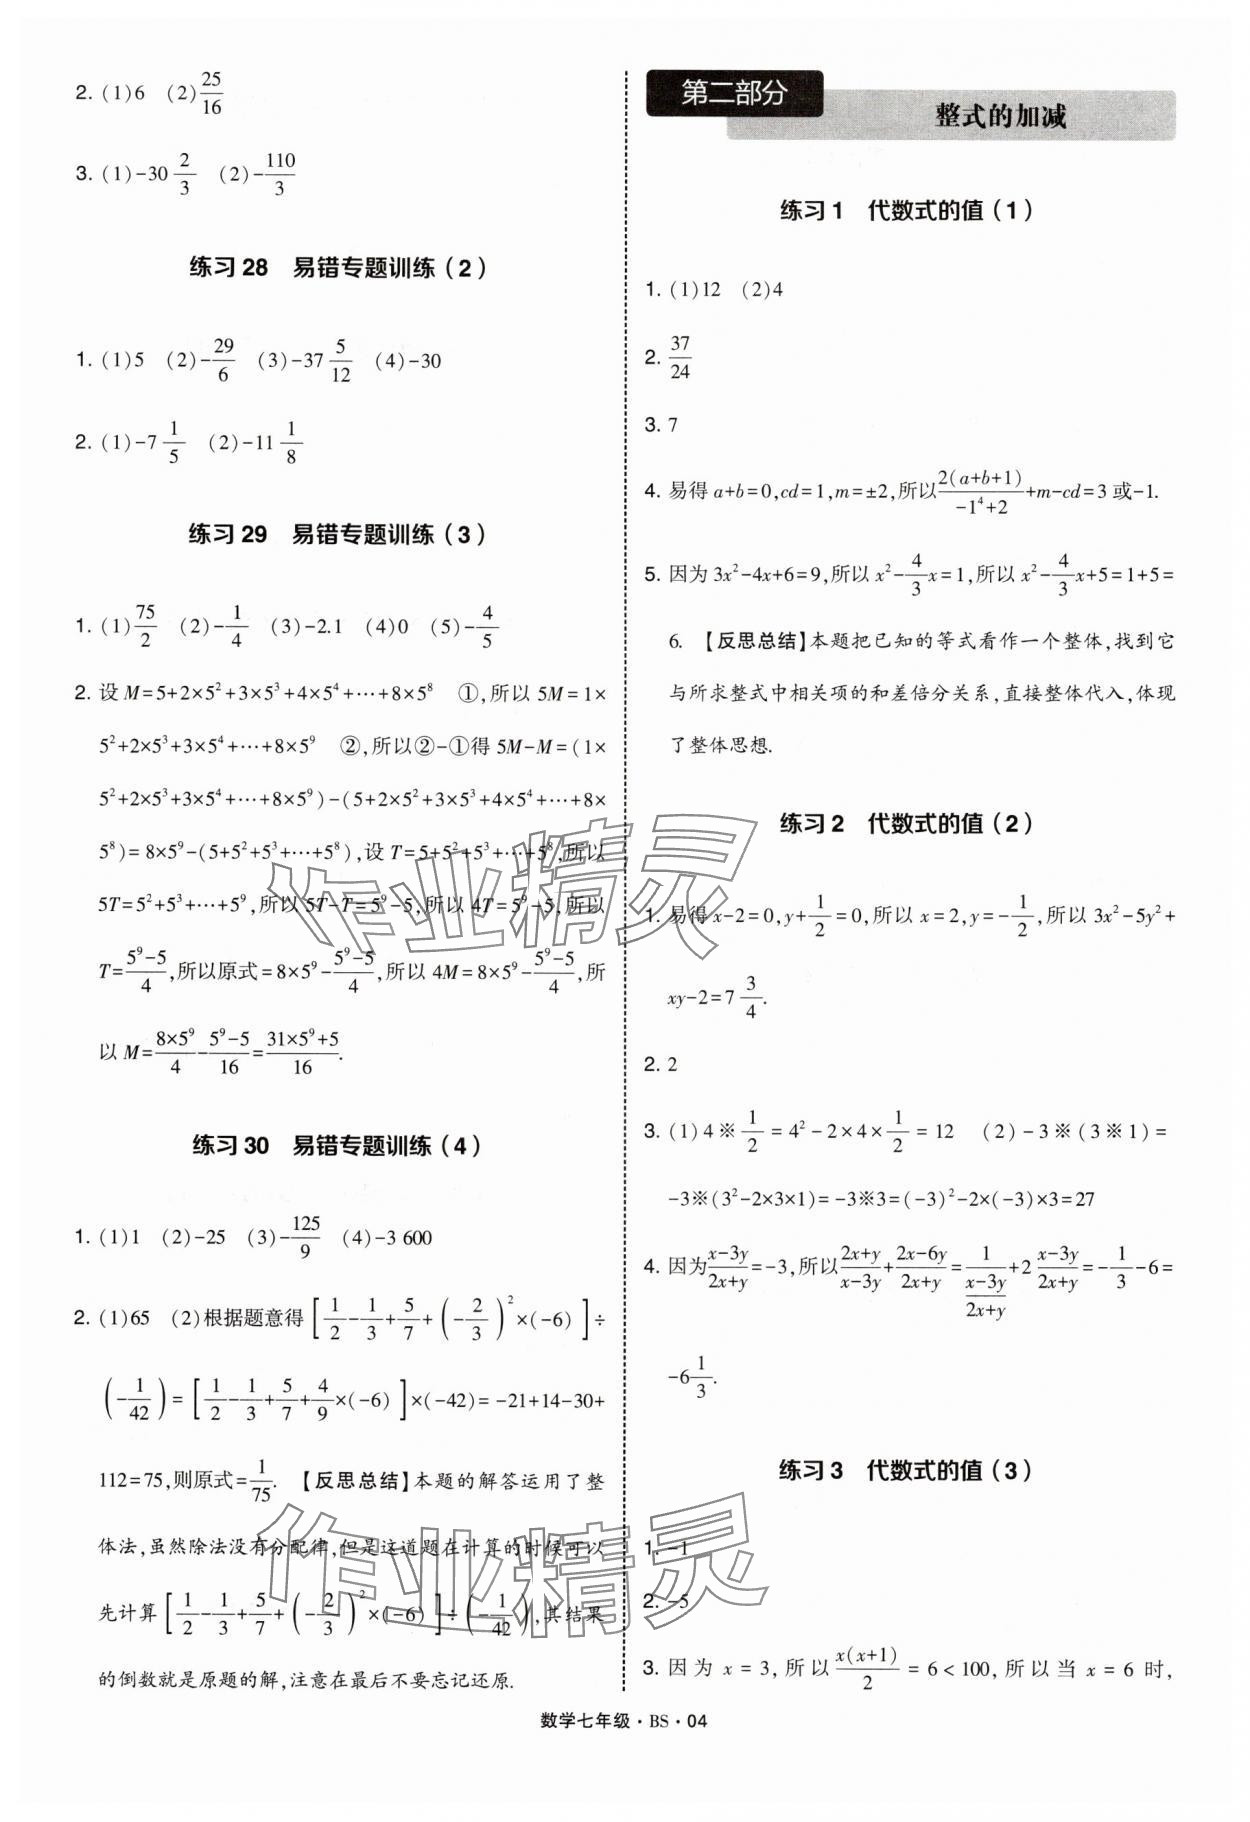 2. (1)6 (2)25/16
3. (1)-30 2/3 (2)-110/3
练习 28 易错专题训练(2)
1. (1)5 (2)-29/6 (3)-37 5/12 (4)-30
2. (1)-7 1/5 (2)-11 1/8
练习 29 易错专题训练(3)
1. (1)75/2 (2)-1/4 (3)-2.1 (4)0 (5)-4/5
2. 设 M=5+2×5²+3×5³+4×5⁴+…+8×5⁸ ①,所以 5M=1×
5²+2×5³+3×5⁴+…+8×5⁹ ②,所以②-①得 5M-M=(1×
5²+2×5³+3×5⁴+…+8×5⁹)-(5+2×5²+3×5³+4×5⁴+…+8×
5⁸)=8×5⁹-(5+5²+5³+…+5⁸),设 T=5+5²+5³+…+5⁸,所以
5T=5²+5³+…+5⁹,所以 5T-T=5⁹-5,所以 4T=5⁹-5,所以
T=(5⁹-5)/4,所以原式=8×5⁹-(5⁹-5)/4,所以 4M=8×5⁹-(5⁹-5)/4,所
以 M=(8×5⁹)/4-(5⁹-5)/16=(31×5⁹+5)/16.
练习 30 易错专题训练(4)
1. (1)1 (2)-25 (3)-125/9 (4)-3 600
2. (1)65 (2)根据题意得[1/2-1/3+5/7+(-2/3)²×(-6)]÷
(-1/42)=[1/2-1/3+5/7+4/9×(-6)]×(-42)=-21+14-30+
112=75,则原式=1/75. 【反思总结】本题的解答运用了整
体法,虽然除法没有分配律,但是这道题在计算的时候可以
先计算[1/2-1/3+5/7+(-2/3)²×(-6)]÷(-1/42),其结果
的倒数就是原题的解,注意在最后不要忘记还原.
第二部分
整式的加减
练习 1 代数式的值(1)
1. (1)12 (2)4
2. 37/24
3. 7
4. 易得 a+b=0,cd=1,m=±2,所以2(a+b+1)/(-1⁴+2)+m-cd=3 或-1.
5. 因为 3x²-4x+6=9,所以 x²-4/3x=1,所以 x²-4/3x+5=1+5=
6. 【反思总结】本题把已知的等式看作一个整体,找到它
与所求整式中相关项的和差倍分关系,直接整体代入,体现
了整体思想.
练习 2 代数式的值(2)
1. 易得 x-2=0,y+1/2=0,所以 x=2,y=-1/2,所以 3x²-5y²+
xy-2=7 3/4.
2. 2
3. (1)4※1/2=4²-2×4×1/2=12 (2)-3※(3※1)=
-3※(3²-2×3×1)=-3※3=(-3)²-2×(-3)×3=27
4. 因为(x-3y)/(2x+y)=-3,所以(2x+y)/(x-3y)+(2x-6y)/(2x+y)=1/((x-3y)/(2x+y))+2 (x-3y)/(2x+y)=-1/3-6=
-6 1/3.
练习 3 代数式的值(3)
1. -1
2. -5
3. 因为 x=3,所以x(x+1)/2=6<100,所以当 x=6 时,
数学七年级·BS·04
作业精灵
作业精灵